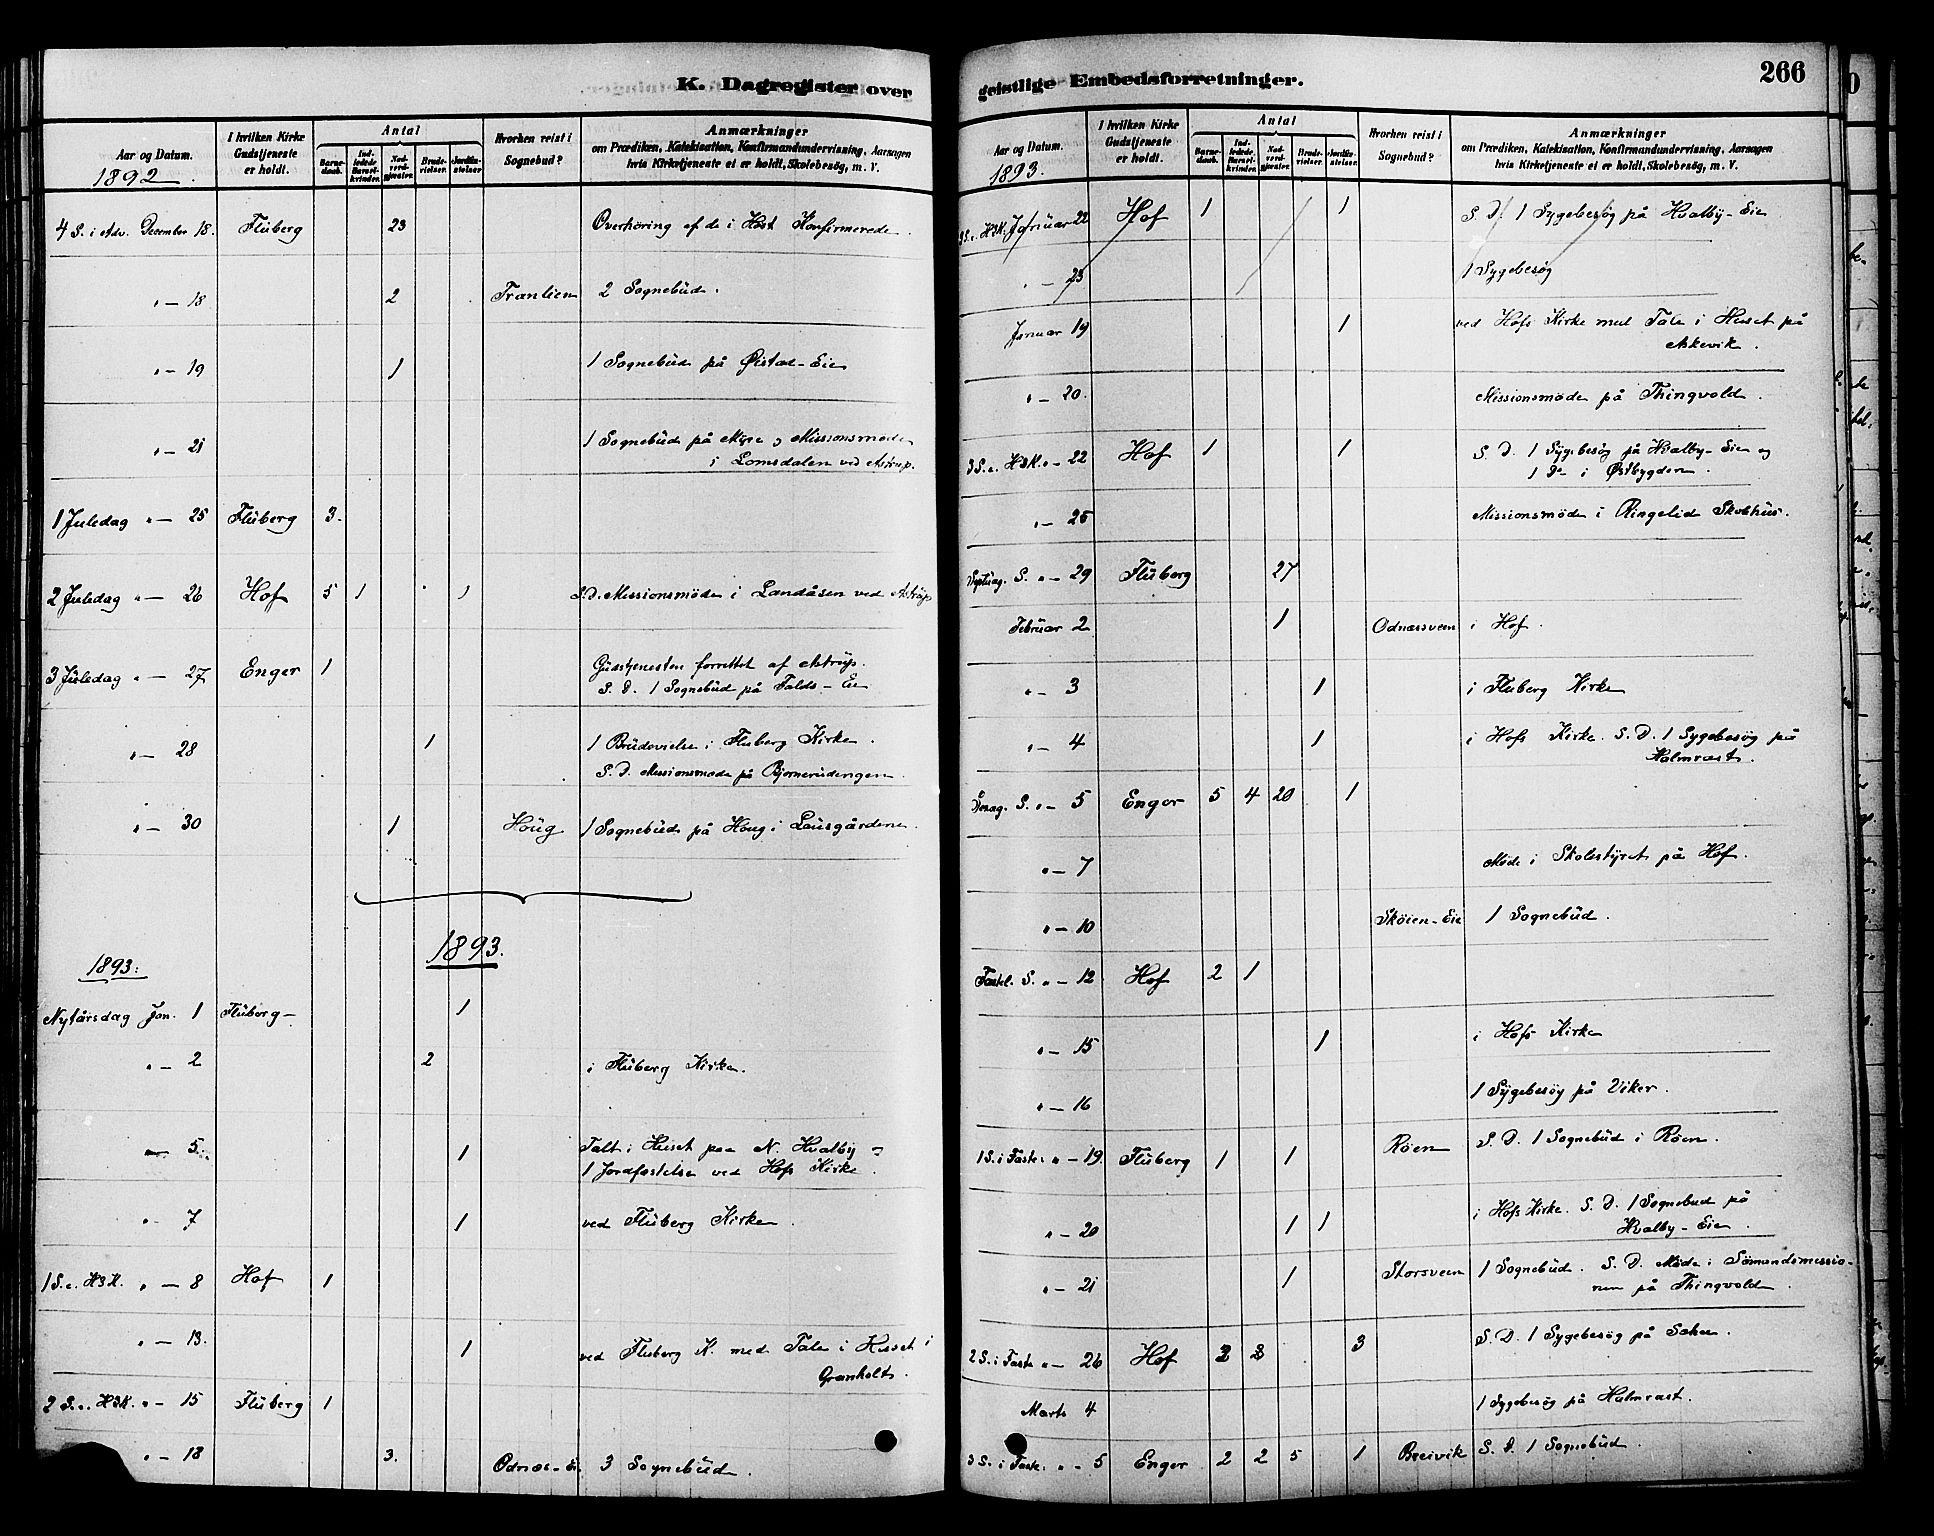 K. Dagregister over
Aar og Datum.
1892
I hvilken Kirke Gudstjeneste er holdt.
Antal
Barne-daab.
Ind-ledede Barsel-kvinder.
Nad-verd-gjæster.
Brude-vielser.
Jordfæ-stelser
Hvorhen reist i Sognebud?
Anmærkninger
om Prædiken, Katekisation, Konfirmandundervisning, Aarsagen
hvis Kirketjeneste ei er holdt, Skolebesøg, m. V.
4 S. i Adv. December 18. Fluberg 23 Overhøring af de i Høst Konfirmerede.
" — 18 2 Tranlien 2 Sognebud.
" — 19 1 1 Sognebud på Øistad-Eie
" — 21 1 Sognebud på Myre og Missionsmøde
i Lomsdalen ved Astrup.
1 Juledag " — 25 Fluberg 3.
2 Juledag " — 26 Hof 5 1 1 S.D. Missionsmøde i Landåsen ved Astrup
3 Juledag " — 27 Enger 1 Gudstjenesten forrettet af Astrup.
S. D. 1 Sognebud på Falds-Eie
" — 28 1 1 Brudevielse i Fluberg Kirke.
S. D. Missionsmøde på Bjørnerudengen.
" — 30 1 Houg 1 Sognebud på Houg i Lausgårdene.
1893.
1893:
Nytårsdag Jan. 1 Fluberg— 1
" — 2 2 i Fluberg Kirke.
" — 5. 1 Talt i Huset paa N. Hvalby =
1 Jordfæstelse ved Hofs Kirke.
" — 7 1 ved Fluberg Kirke.
1 S. e. H3K. " — 8 Hof 1
" — 13. 1 ved Fluberg K. med Tale i Huset i
Granholt.
2 S. e. H3K. " — 15 Fluberg 1
" — 18 3. Odnæs-Ei. 3 Sognebud.
geistlige Embedsforretninger.
266
Aar og Datum.
1893.
I hvilken Kirke Gudstjeneste er holdt.
Antal
Barne-daab.
Ind-ledede Barsel-kvinder.
Nad-verd-gjæster.
Brude-vielser.
Jordfæ-stelser.
Hvorhen reist i Sognebud?
Anmærkninger
om Prædiken, Katekisation, Konfirmandundervisning, Aarsagen
hvis Kirketjeneste ei er holdt, Skolebesøg, m. V.
3 S. e. H3K. Januar 22 Hof 1 1 S. D. 1 Sygebesøg på Hvalby-Eie
" — 23 1 Sygebesøg
Januar 19 1 ved Hofs Kirke med Tale i Huset på
Askevik.
" — 20. Missionsmøde på Thingvold.
3 S. e. H3K. " — 22 Hof 1 1 S. D. 1 Sygebesøg på Hvalby-Eie og
1 Do i Østbygden.
" — 25 Missionsmøde i Ringelid Skolhus.
Septuag. S. " — 29 Fluberg 27
Februar 2 1 Odnæssveen i Hof.
" — 3 1 i Fluberg Kirke
" — 4 1 i Hofs Kirke. S. D. 1 Sygebesøg på
Halmrast.
S. " — 5 Enger 5 4 20 1
" — 7 Møde i Skolestyret på Hof.
" — 10 Skøien-Eie 1 Sognebud.
Fastel. S. " — 12 Hof 2 1
" — 15 1 i Hofs Kirke
" — 16 1 Sygebesøg på Viker.
1 S. i Faste " — 19. Fluberg 1 1 Røen S. D. 1 Sognebud i Røen.
" — 20 1 1 i Hofs Kirke. S. D. 1 Sognebud på
Hvalby-Eie.
" — 21 1 Storsveen 1 Sognebud. S. D. Møde i Sømandsmissio-
nen på Thingvold.
2 S. i Faste " — 26 Hof 2 2 3 S. D. 1 Sygebesøg på
Marts 4 1 Sygebesøg på Halmrast.
3 S. i Faste. " — 5 Enger 2 2 5 1 Breivik S. D. 1 Sognebud.